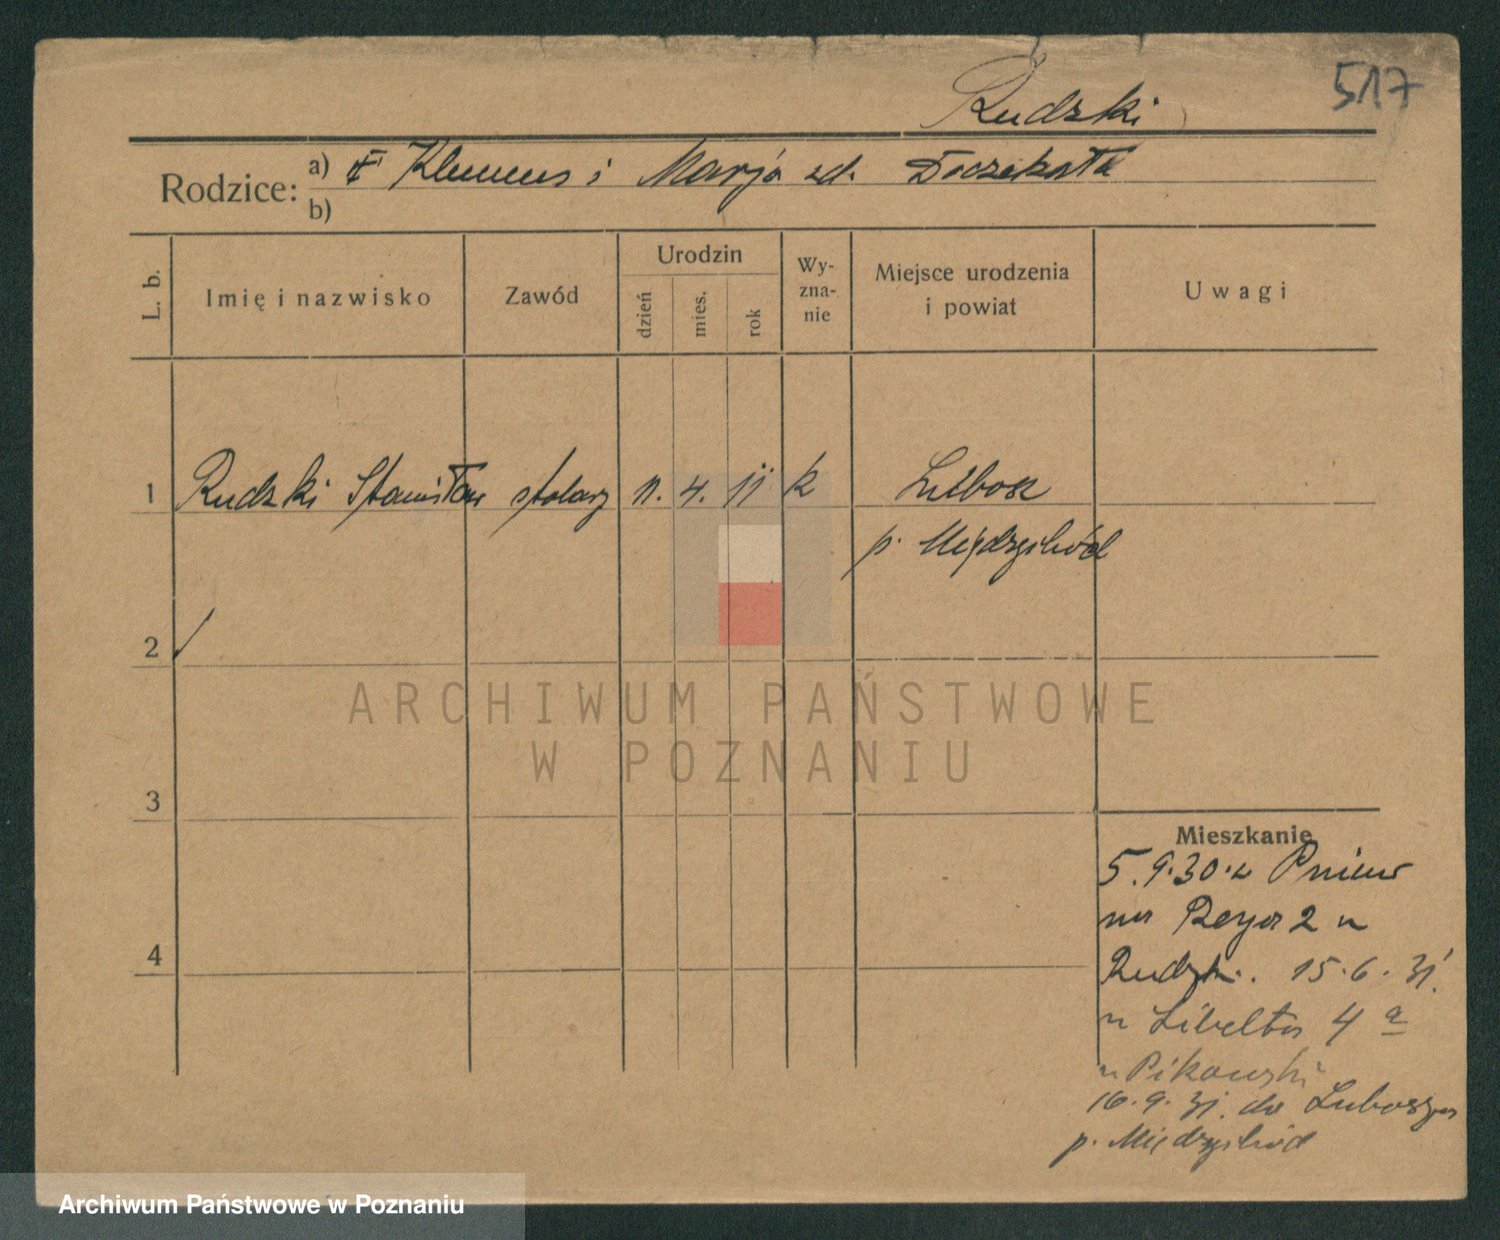 517
Rudzki
Rodzice: a) Klemens i Marja zd.
b)
L. b.
Imię i nazwisko
Zawód
Urodzin
dzień
mies.
rok
Wy-
zna-
nie
Miejsce urodzenia
i powiat
Uwagi
1 Rudzki Stanisław stolarz 11. 4. 11 k Lubosz
p. Międzychód
2
3
4
ARCHIWUM PAŃSTWOWE
W POZNANIU
Mieszkanie
5.9.30. z Pniew
na Reya 2 u
Rudzki. 15.6.31.
u Libelta 4 a
u Pikowski
16.9.31. do Lubosza
p. Międzychód
Archiwum Państwowe w Poznaniu